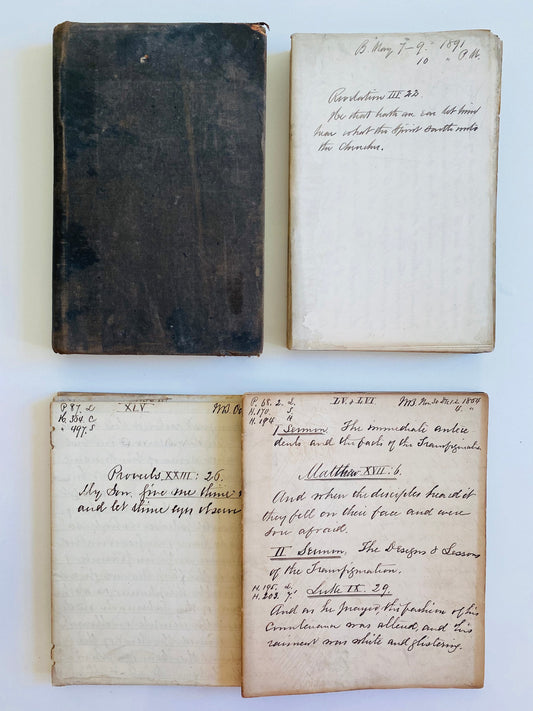 B. May 7-9. 1891
10 " P.M.
Revelation III. 22.
He that hath an ear let him
hear what the Spirit saith unto
the Churches.
P. 87. L
H. 354. C
" 497. S
XLV
WB. Oc
Proverbs XXIII: 26.
My Son give me thine
and let thine eyes observe
P. 68. 2. L.
H. 170. S.
H. 184. H
LV & LVI
WB. 1864
I Sermon. The immediate antece
dents and the facts of the Transfiguratio
Matthew XVII. 6.
And when the disciples heard it
they fell on their face and were
sore afraid.
II Sermon. The Designs & Lessons
of the Transfiguration.
H. 195. L.
H. 203. 7.
Luke IX. 29.
And as he prayed the fashion of his
countenance was altered, and his
raiment was white and glistering.